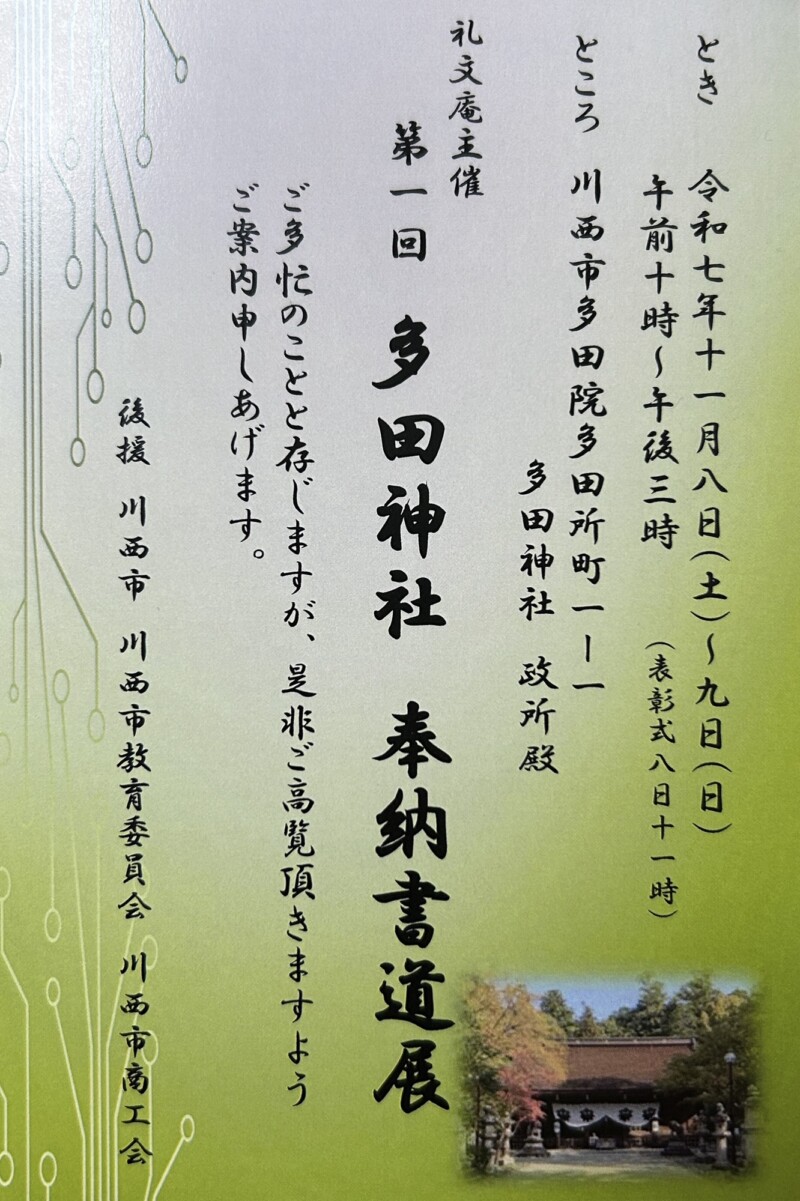 とき 令和七年十一月八日(土)~九日(日)
午前十時~午後三時 (表彰式八日十一時)
ところ 川西市多田院多田所町一ー一
多田神社 政所殿
礼文庵主催
第一回 多田神社 奉納書道展
ご多忙のことと存じますが、是非ご高覧頂きますよう
ご案内申しあげます。
後援 川西市 川西市教育委員会 川西市商工会